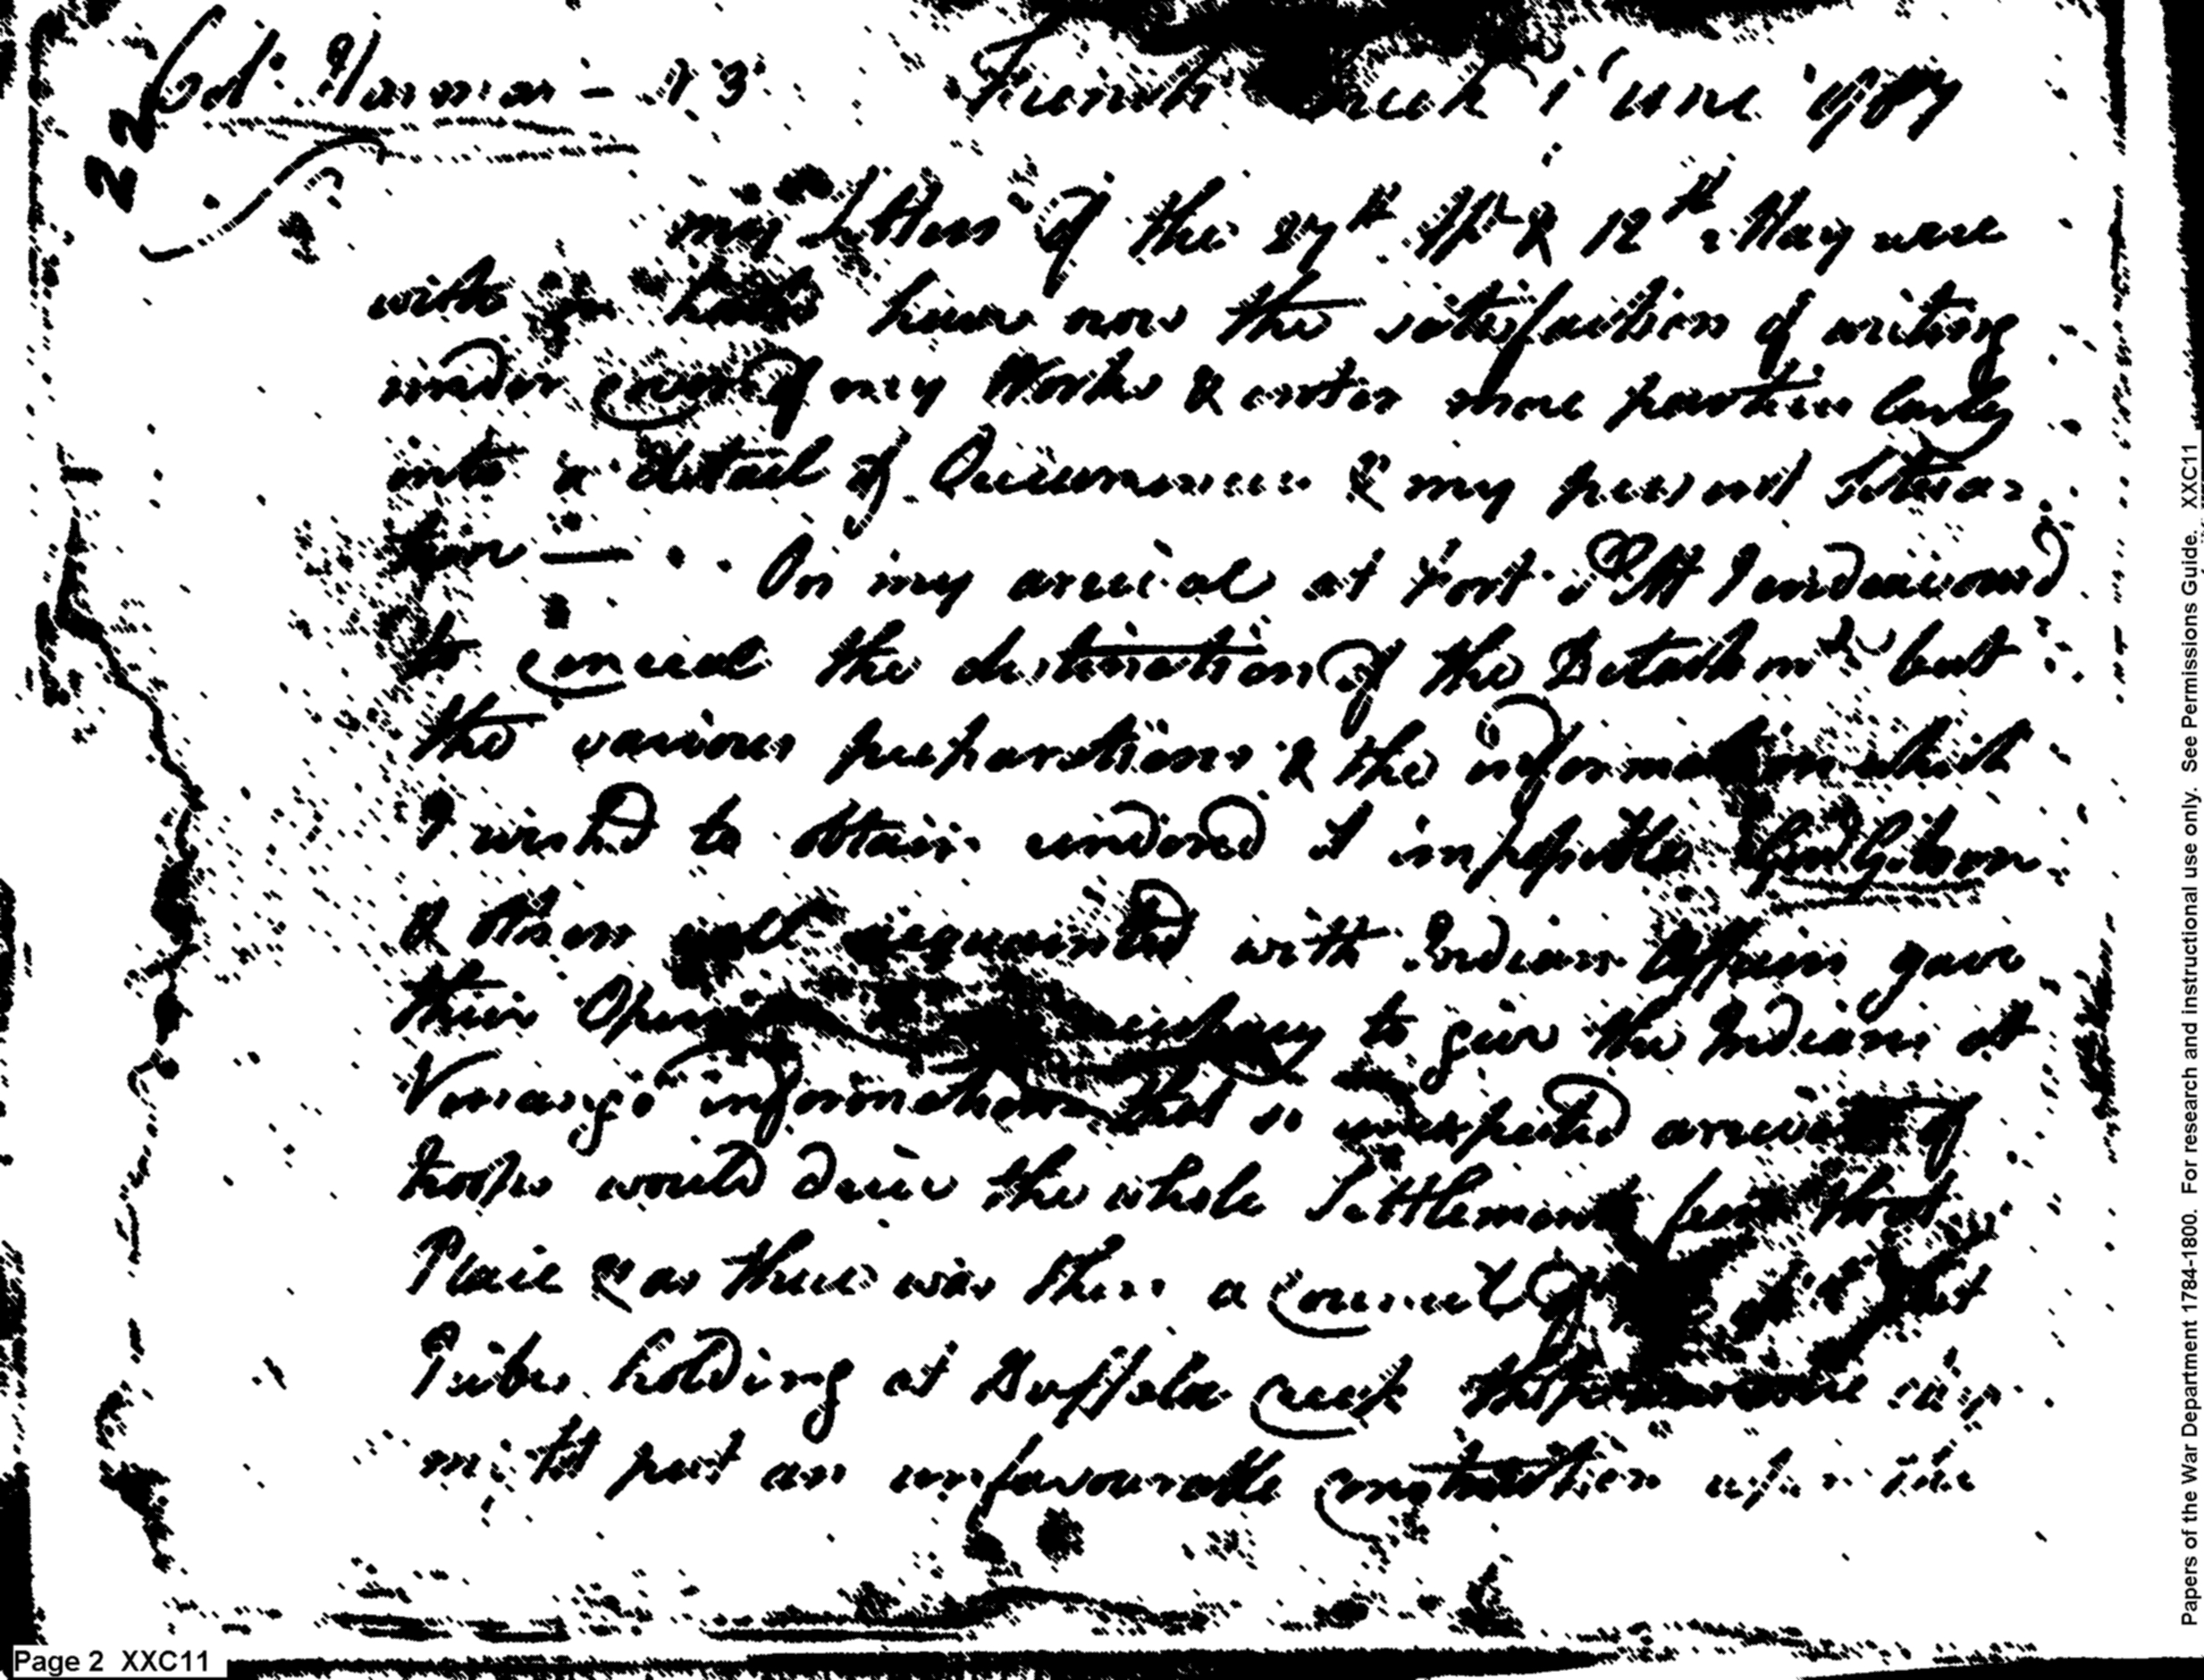 22
Col. Harmar - 13 French Creek 1 June 1787
my Letters of the 27th Apl & 12th May were
with have now the satisfaction of writing
under cover of my Works & enter more particularly
into a detail of Occurrences & my present Situa
tion — On my arrival at Fort Pitt I endeavoured
to conceal the destination of the Detachmt but
the various preparations & the information which
I wished to obtain rendered it impossible Genl Gibson
& others well acquainted with Indian Affairs gave
their necessary to give the Indians at
Venango information that so unexpected arrival of
troops would drive the whole Settlement from that
Place & as there was then a Council of
Tribes holding at Buffaloe Creek
might put an unfavourable construction upon the
Page 2 XXC11
Papers of the War Department 1784-1800. For research and instructional use only. See Permissions Guide. XXC11